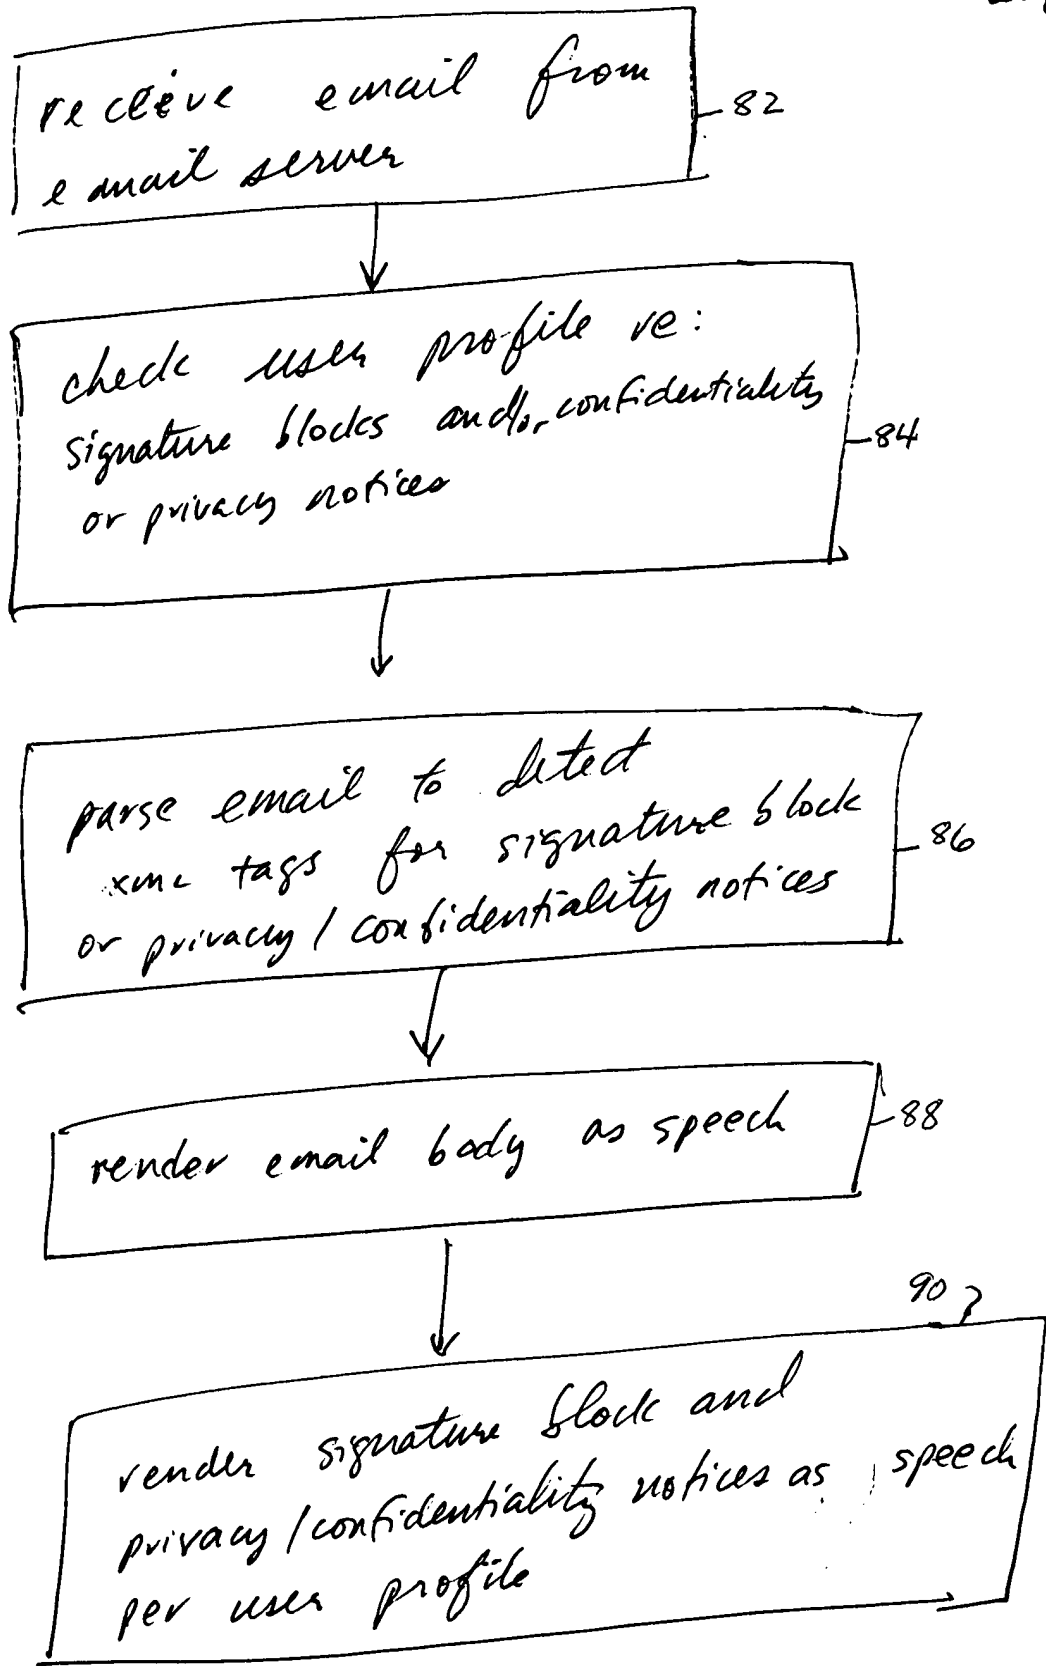 receive email from
email server
82
check user profile re:
signature blocks and/or confidentiality
or privacy notices
84
parse email to detect
xml tags for signature block
or privacy / confidentiality notices
86
render email body as speech
88
90
render signature block and
privacy / confidentiality notices as speech
per user profile